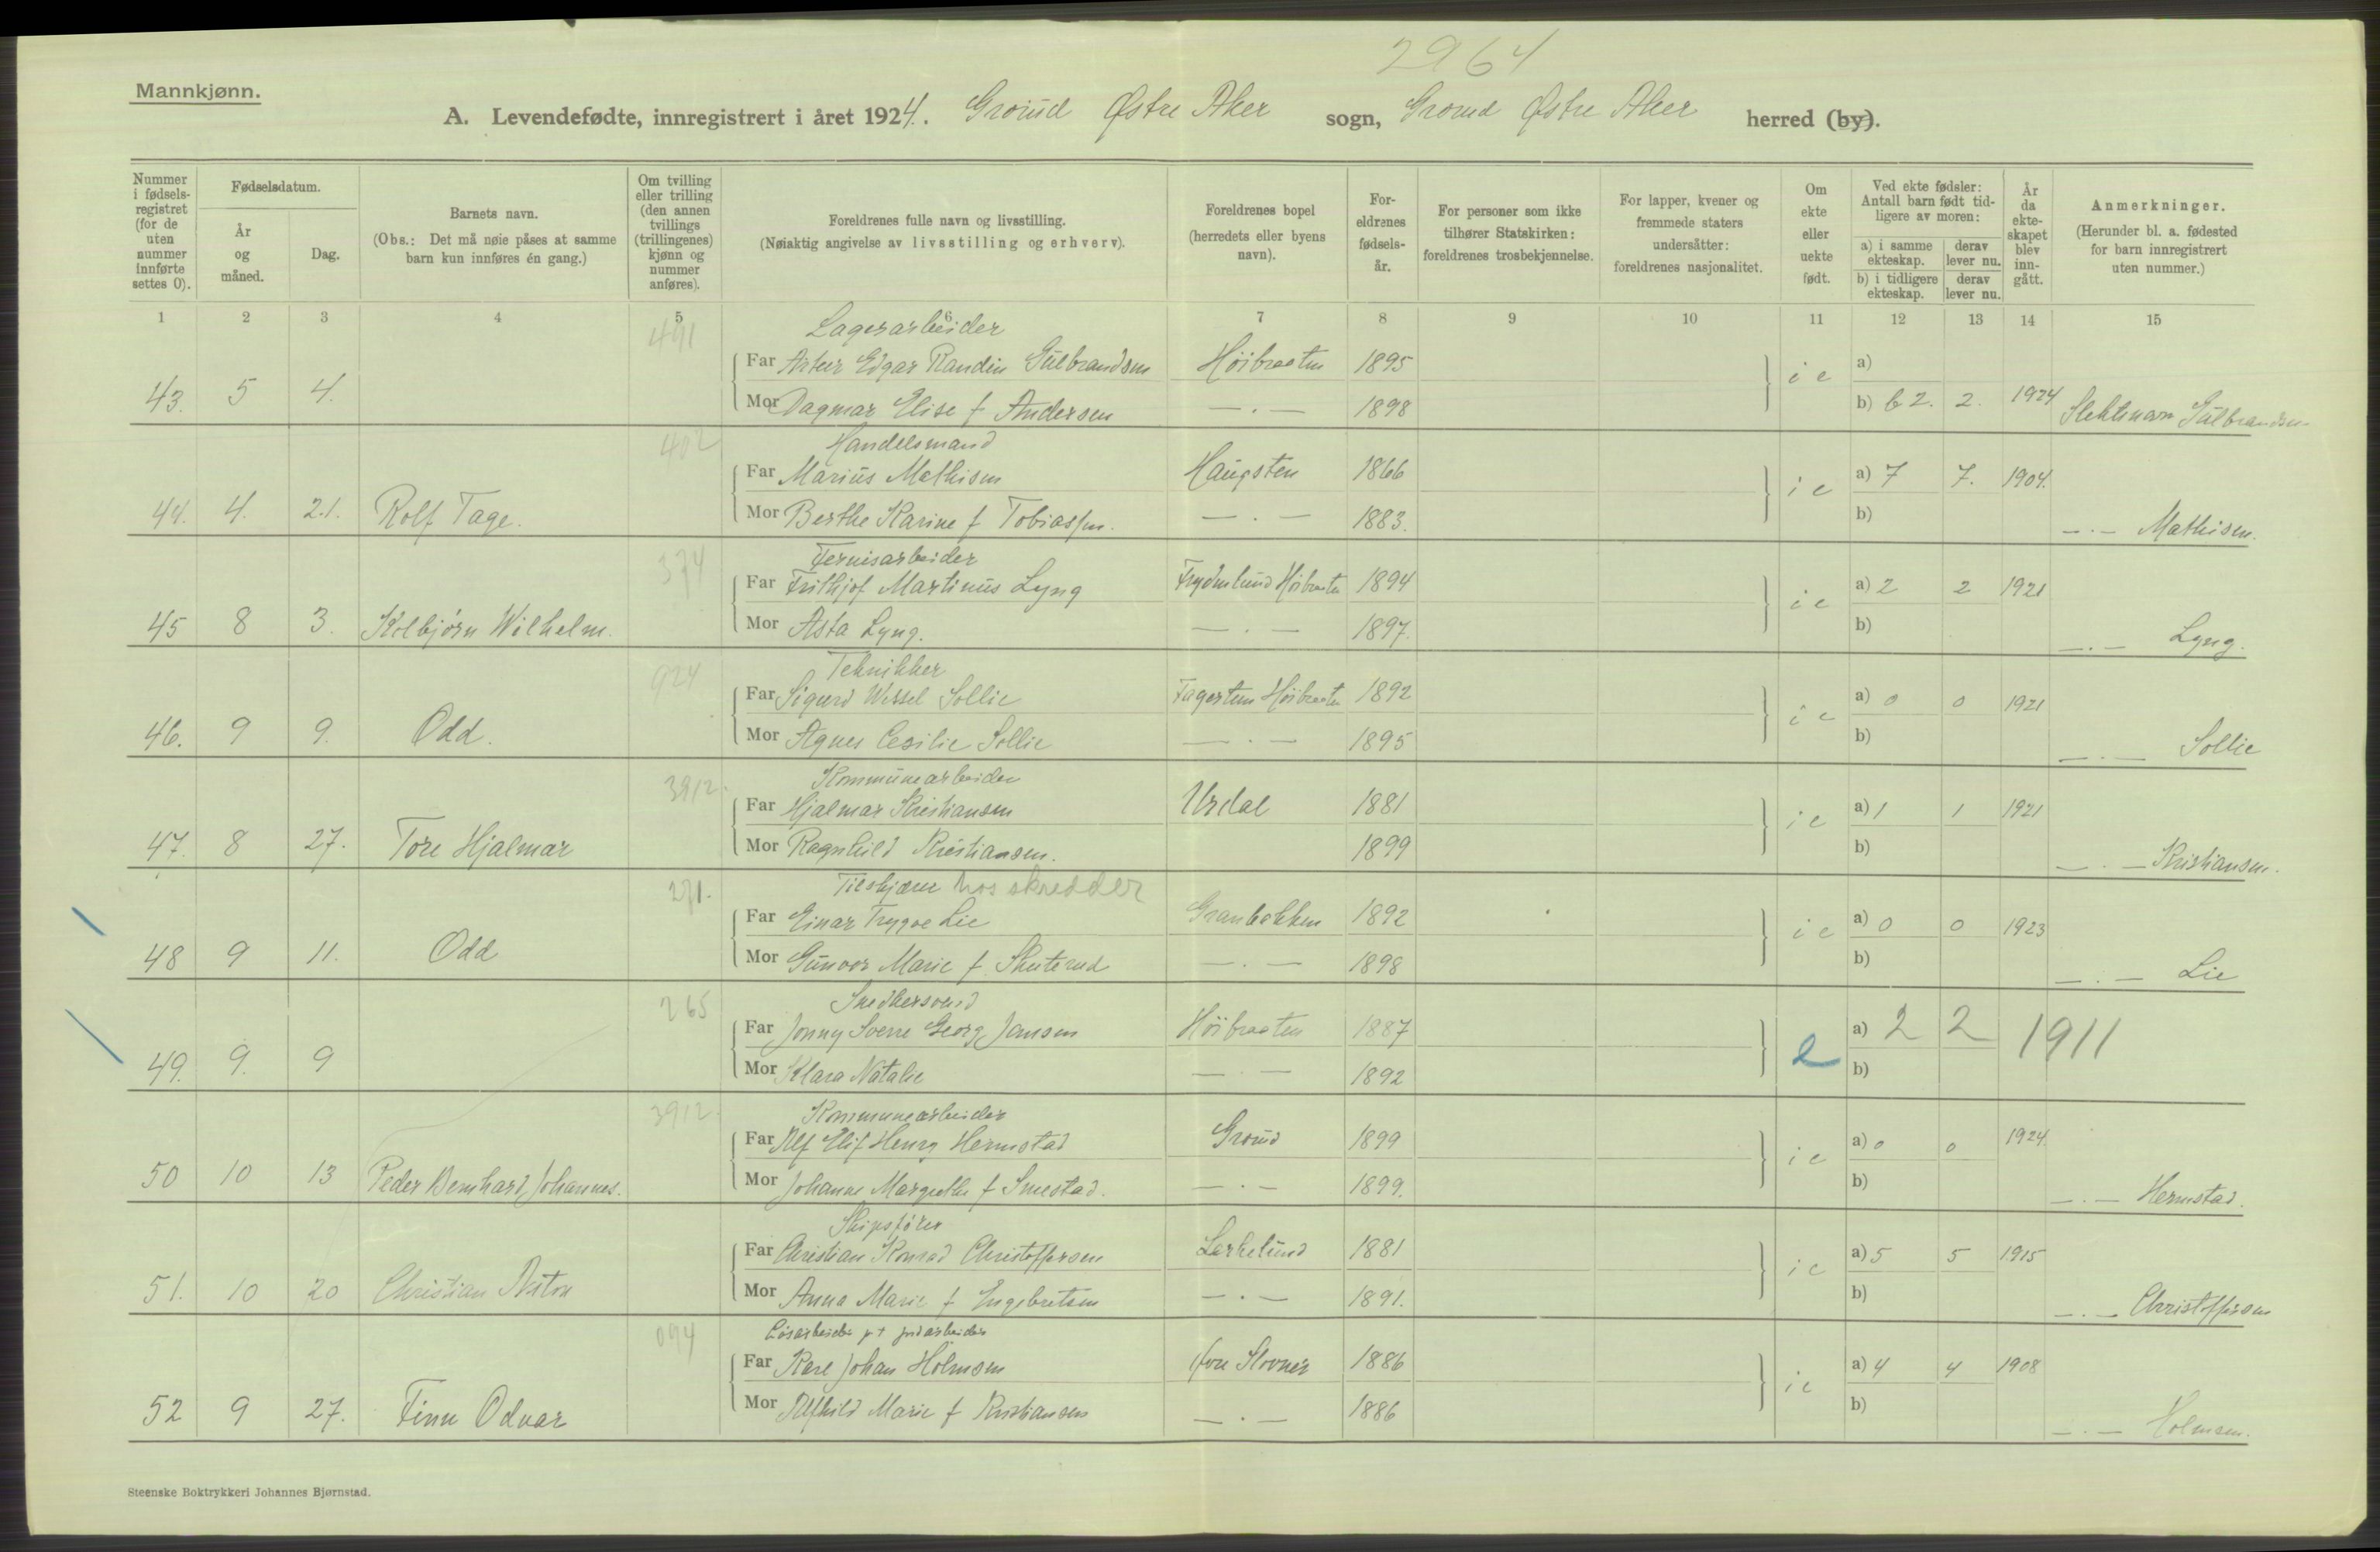 2964
Mannkjønn.
A. Levendefødte, innregistrert i året 1924. Grorud Østre Aker sogn, Grorud Østre Aker herred (by).
Nummer i fødselsregistret (for de uten nummer innførte settes 0).
Fødselsdatum.
År og måned.
Dag.
Barnets navn.
(Obs.: Det må nøie påses at samme barn kun innføres én gang.)
Om tvilling eller trilling (den annen tvillings (trillingenes) kjønn og nummer anføres).
Foreldrenes fulle navn og livsstilling.
(Nøiaktig angivelse av livsstilling og erhverv).
Foreldrenes bopel (herredets eller byens navn).
Foreldrenes fødselsår.
For personer som ikke tilhører Statskirken: foreldrenes trosbekjennelse.
For lapper, kvener og fremmede staters undersåtter: foreldrenes nasjonalitet.
Om ekte eller uekte født.
Ved ekte fødsler: Antall barn født tidligere av moren:
a) i samme ekteskap. derav lever nu.
b) i tidligere ekteskap. derav lever nu.
År da ekteskapet blev inngått.
Anmerkninger.
(Herunder bl. a. fødested for barn innregistrert uten nummer.)
1 2 3 4 5 6 7 8 9 10 11 12 13 14 15
491 Lagerarbeider
Far Artur Edgar Randin Gulbrandsen Høibraaten 1895 a)
43. 5 4. i e
Mor Dagmar Elise f Andersen — . — 1898 b) b 2. 2. 1924 Slektsnavn Gulbrandsen
402 Handelsmand
Far Marius Mathisen Haugsten 1866 a) 7 7. 1904.
44. 4. 21. Rolf Tage. i e
Mor Berthe Karine f Tobiassen. — . — 1883. b) — . — Mathisen.
374 Fernisarbeider
Far Frithjof Martinus Lyng Frydenlund Høibraaten 1894 a) 2 2 1921
45 8 3. Kolbjørn Wilhelm. i e
Mor Asta Lyng. — . — 1897. b) — . — Lyng.
924 Teknikker
Far Sigurd Wessel Sollie Fagersten Høibraaten 1892 a) 0 0 1921
46. 9 9. Odd. i e
Mor Agnes Cesilie Sollie — . — 1895 b) — . — Sollie
3912. Kommunearbeider
Far Hjalmar Kristiansen Urdal 1881 a) 1 1 1921
47. 8 27. Tore Hjalmar i e
Mor Ragnhild Kristiansen. 1899 b) — . — Kristiansen.
271. Tilskjærer hos skredder
Far Einar Trygve Lie Granbakken 1892 a) 0 0 1923
48 9 11. Odd i e
Mor Gunvor Marie f. Skuterud — . — 1898 b) — . — Lie
265 Snedkersvend
Far Jonny Sverre Georg Jansen Høibraaten 1887 a) 2 2 1911
49. 9. 9 e
Mor Klara Natalie — . — 1892 b)
3912. Kommunearbeider
Far Alf Elif Henry Hermstad Grorud 1899 a) 0 0 1924.
50 10 13 Peder Bernhard Johannes. i e
Mor Johanne Margrethe f Smestad. — . — 1899. b) — . — Hermstad.
Skipsfører
Far Christian Konrad Christoffersen Lerkelund 1881 a) 5 5 1915
51. 10 20 Christian Anton i e
Mor Anna Marie f Engebretsen — . — 1891. b) — . — Christoffersen
094 Løsarbeider p t jordarbeider
Far Kare Johan Holmsen Slovner 1886 a) 4 4 1908
52 9 27. Finn Odvar i e
Mor Alfhild Marie f Kristiansen — . — 1886 b) — . — Holmsen.
Steenske Boktrykkeri Johannes Bjørnstad.